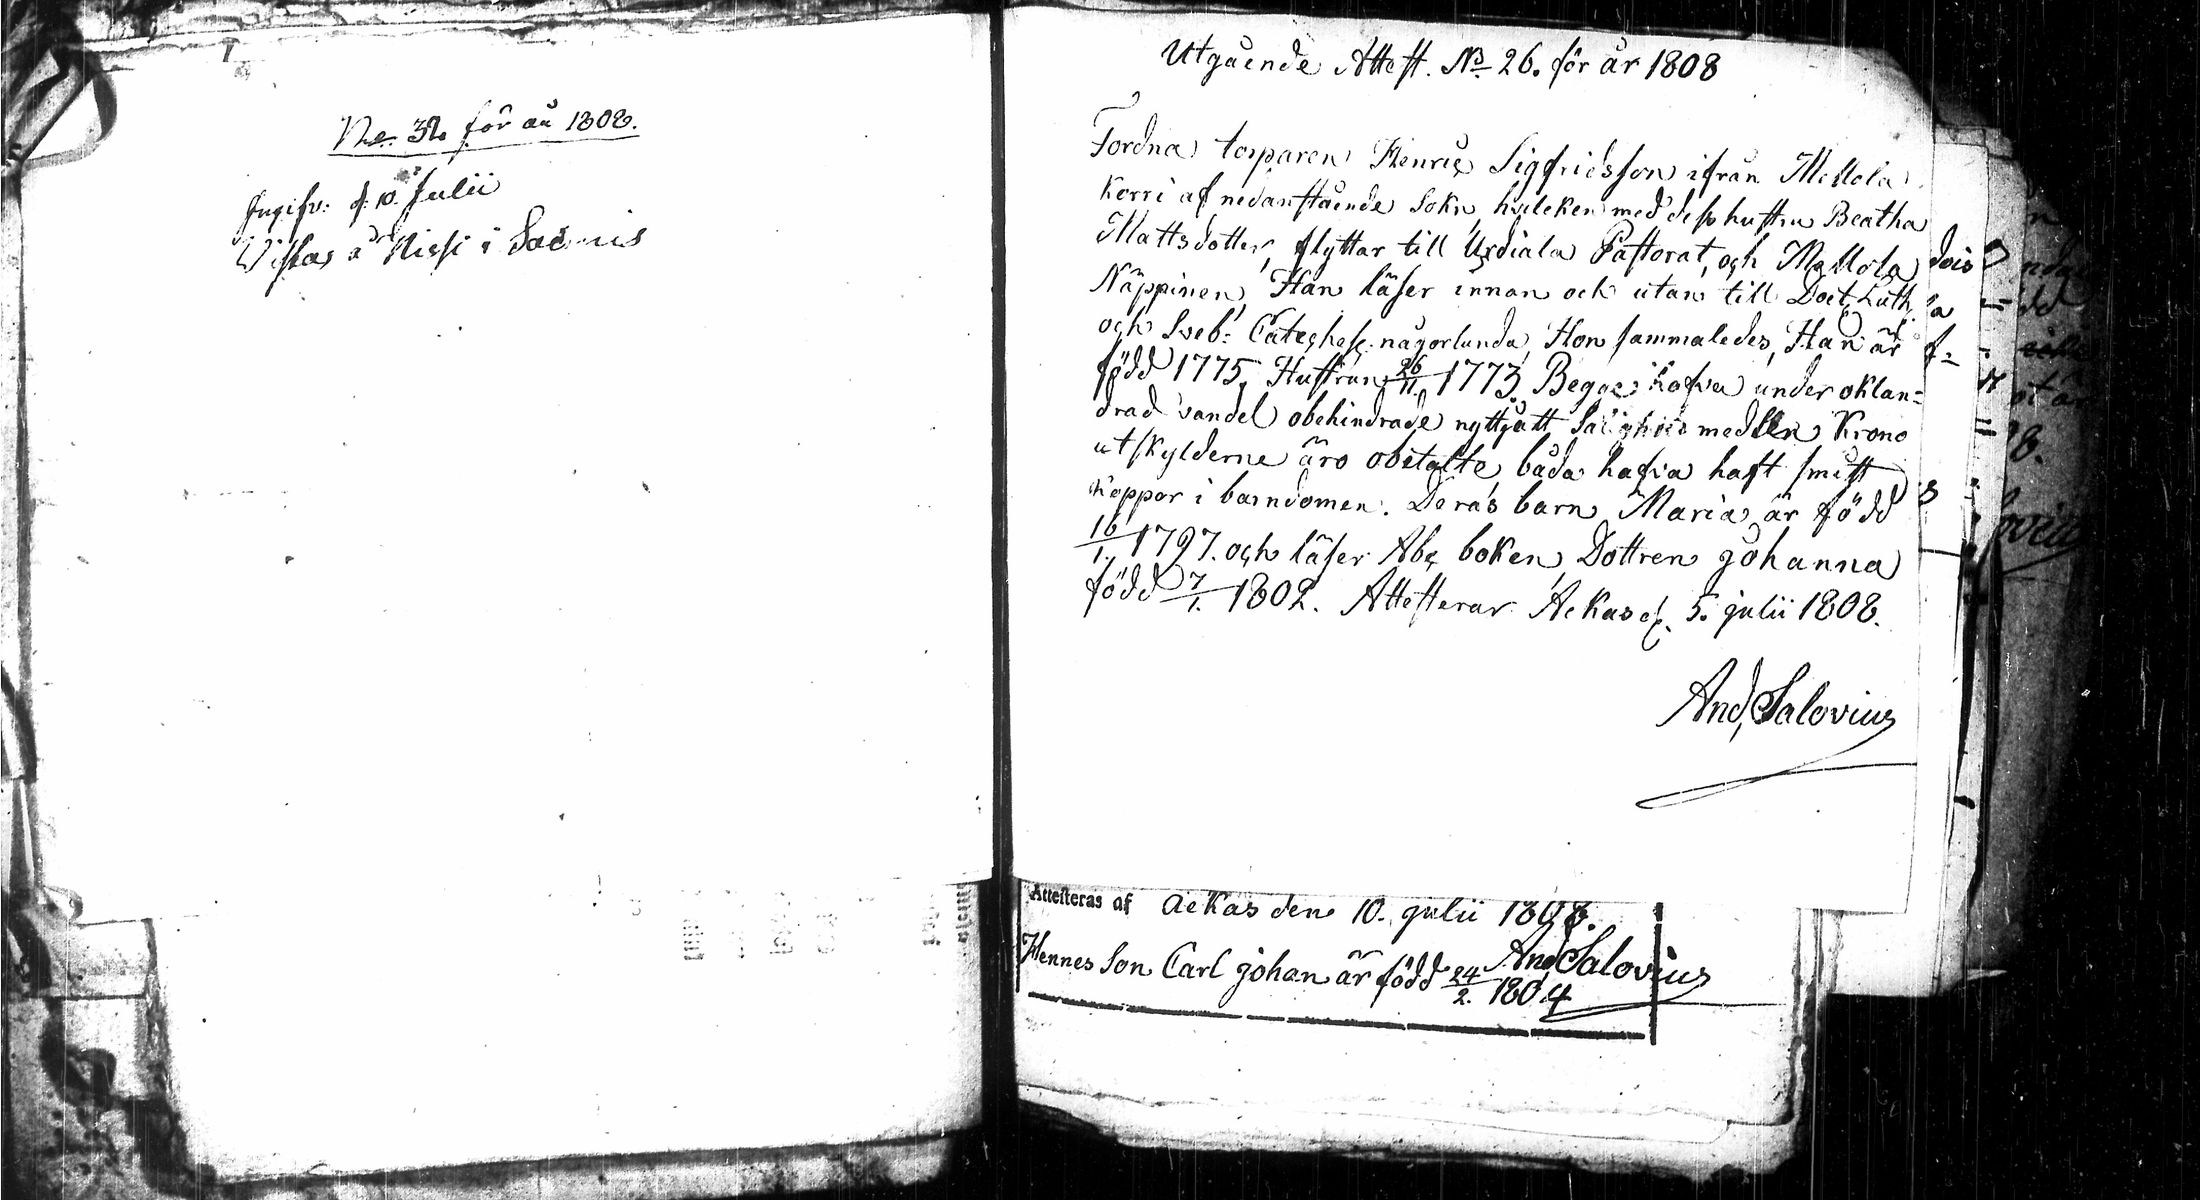 No 32 för år 1808.
Ingifv: d. 10 Julii
Vistas å Nissi i
Utgående Attest. No 26. för år 1808
Fordna torparen Henric Sigfridsson ifrån Mellola
Korri af nedanstående Sokn, hvilken med dess hustru Beatha
Mattsdotter, flyttar till Urdiala Pastorat, och Mellola
Näppinen, Han läser innan och utan till Doct. Luth.
och Sveb: Cateches: någorlunda, Hon sammaledes, Han är
född 1775, Hustrun 26/11. 1773. Begge hafva under oklan=
drad vandel obehindrade nyttjatt Salighets medlen Krono
utskylderne äro obetalte, båda hafva haft smitt
koppor i barndomen. Deras barn Maria är född
16/1. 1797. och läser Abc boken, Dottren Johanna
född 7/1. 1802. Attesterar Ackas d. 5. julii 1808.
And. Salovius
Attesteras af Ackas den 10. julii 1808.
And. Salovius
Hennes Son Carl Johan är född 24/2. 1804